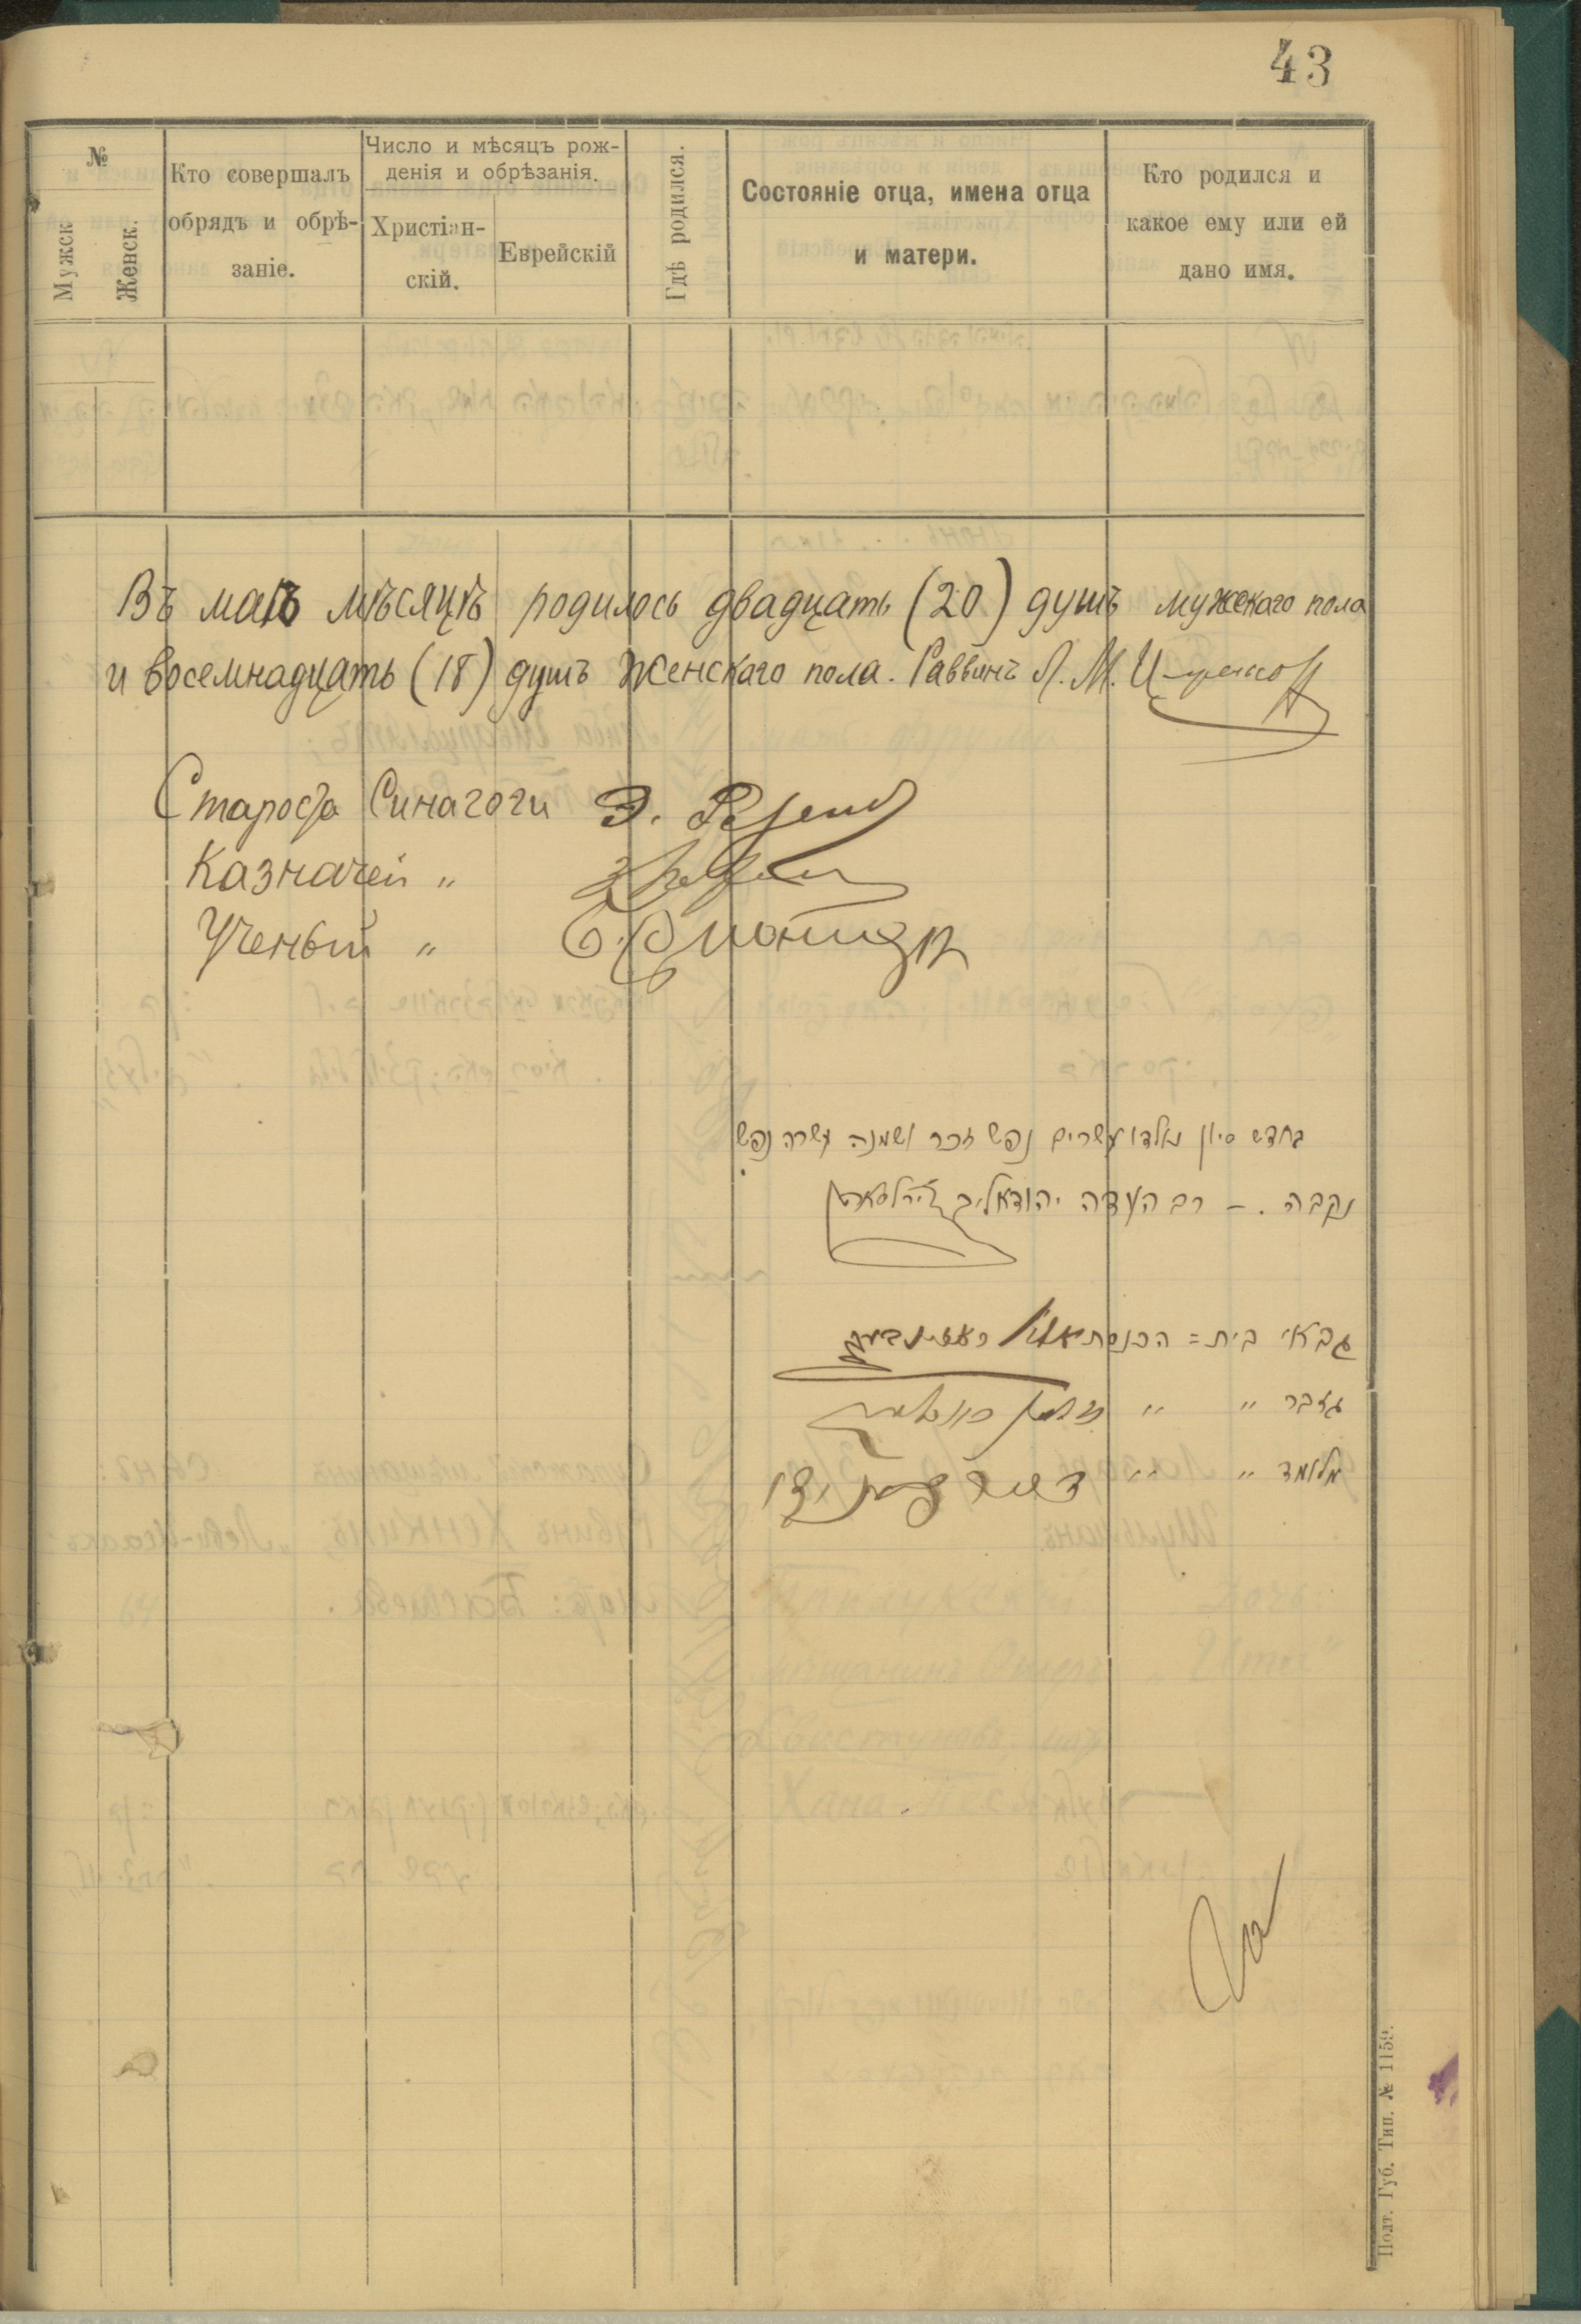 43
№
Мужск
Женск.
Кто совершалъ
обрядъ и обрѣ-
заніе.
Число и мѣсяцъ рож-
денія и обрѣзанія.
Христіан-
скій.
Еврейскій
Гдѣ родился.
Состояніе отца, имена отца
и матери.
Кто родился и
какое ему или ей
дано имя.
Въ маѣ мѣсяцѣ родилось двадцать (20) душъ мужскаго пола
и восемнадцать (18) душъ женскаго пола. Раввинъ Л. М.
Староста Синагоги Э.
Казначей „
Ученый „
בחדש סיון נולדו עשרים נפש זכר ושמנה עשרה נפש
נקבה . – רב העדה
גבאי בית = הכנסת
גזבר „ „
מלומד „ „
Полт. Губ. Тип. № 1159.